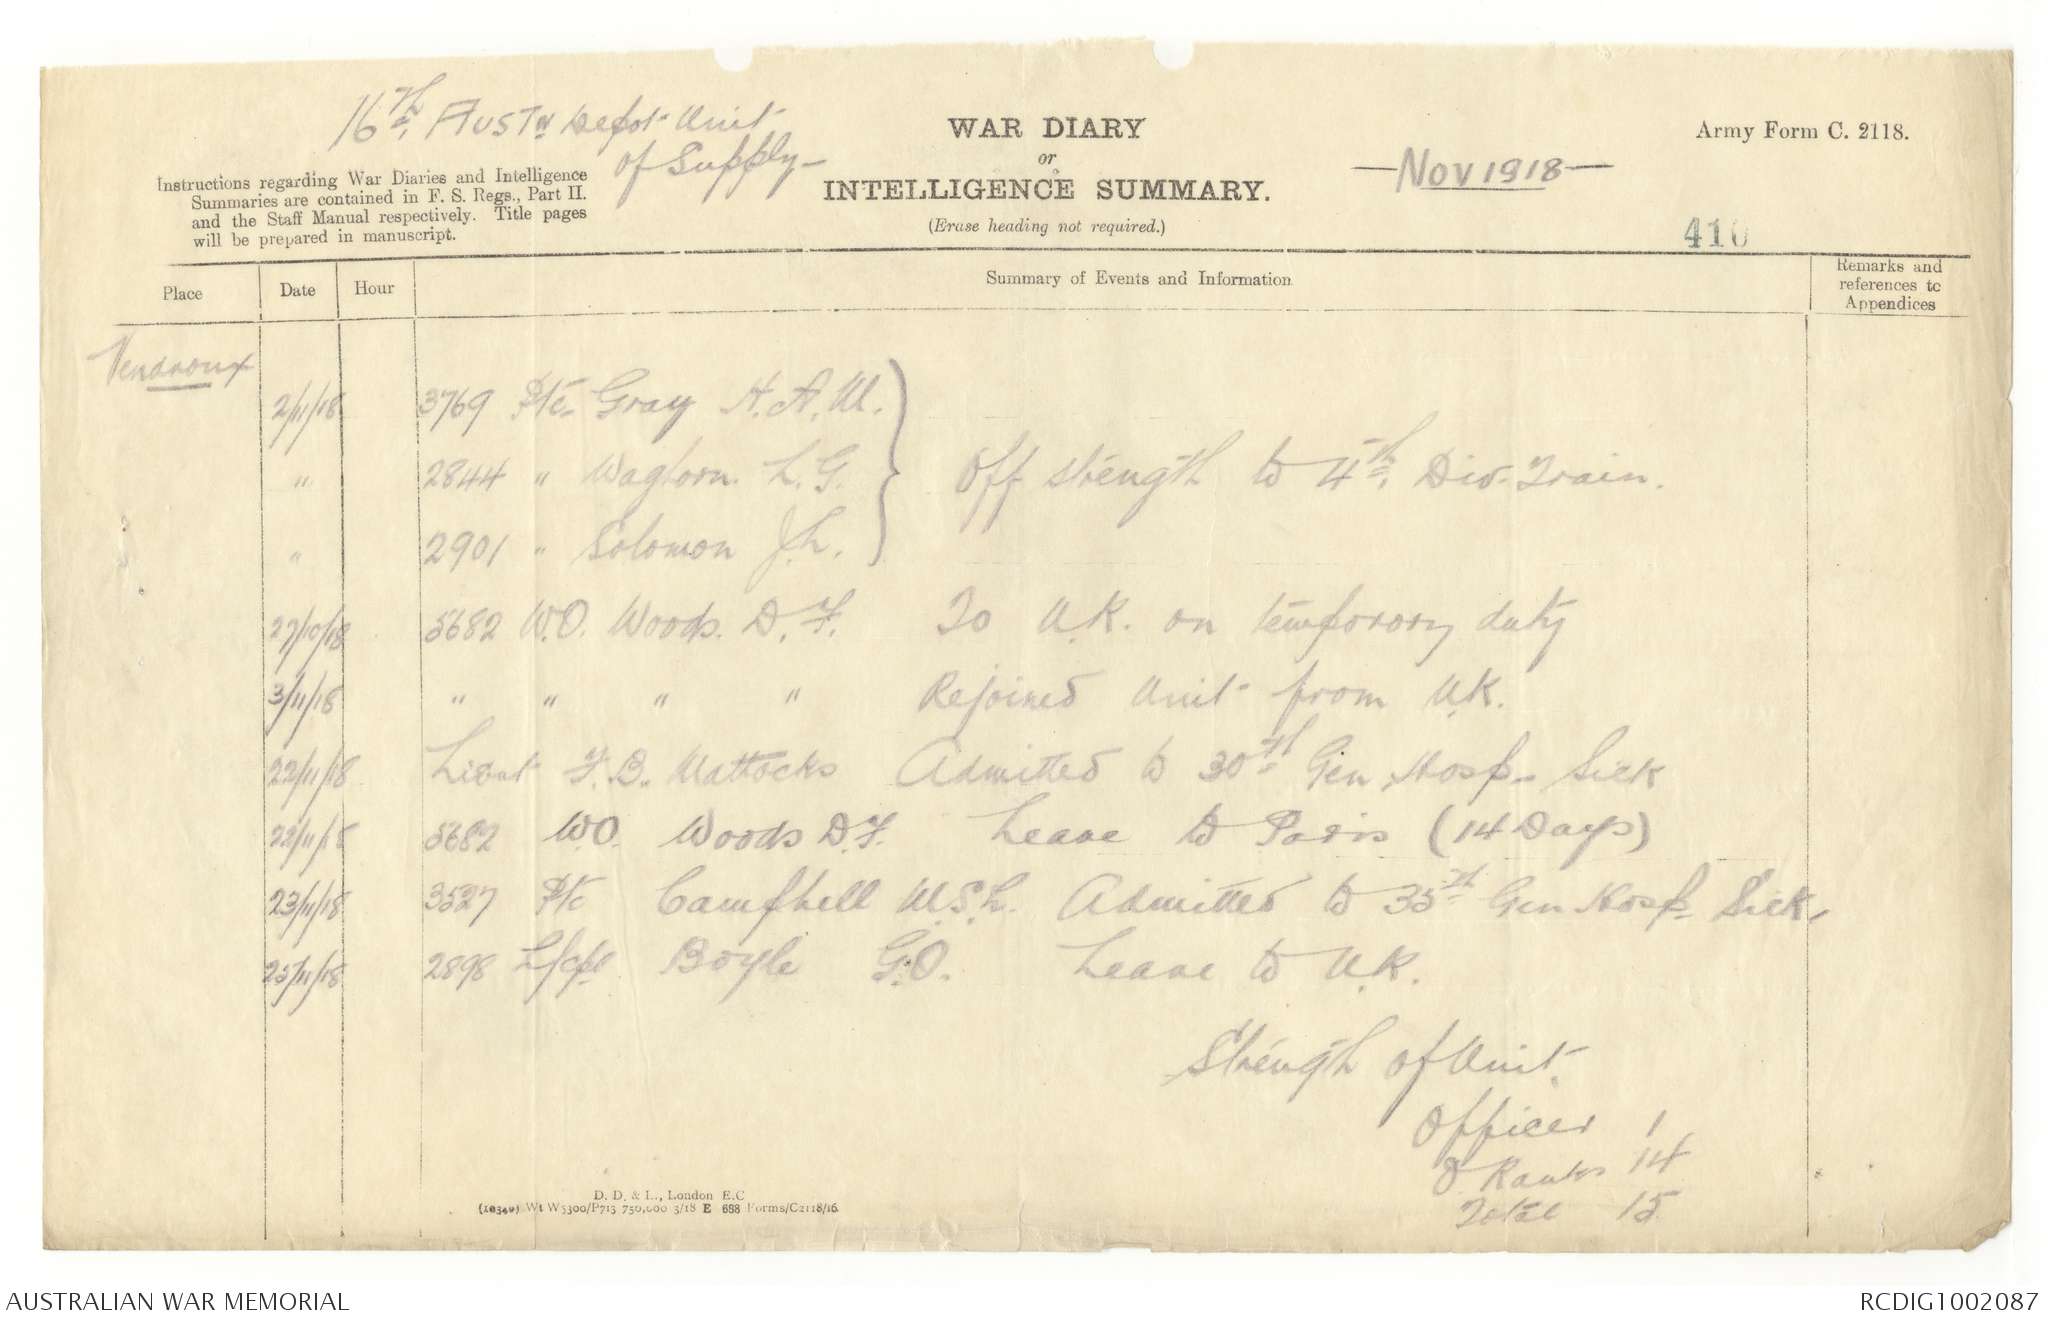 16th Austn Depot Unit
of Supply
WAR DIARY
or
INTELLIGENCE SUMMARY.
(Erase heading not required.)
Army Form C. 2118.
— Nov 1918 —
410
Instructions regarding War Diaries and Intelligence
Summaries are contained in F. S. Regs., Part II.
and the Staff Manual respectively. Title pages
will be prepared in manuscript.
Place Date Hour Summary of Events and Information Remarks and references to Appendices
Vendroux
2/11/18 3769 Pte. Gray H. A. W.
" 2844 " Waghorn. L. G. Off strength to 4th Div. Train.
" 2901 " Solomon J. L.
27/10/18 5682 W.O. Woods. D. F. To U.K. on temporary duty
3/11/18 " " " " Rejoined Unit from U.K.
22/11/18 Lieut F. B. Mattocks Admitted to 30th Gen. Hosp. Sick
22/11/18 5682 W.O. Woods D.F. Leave to Paris (14 Days)
23/11/18 3527 Pte Campbell W.S.L. Admitted to 35th Gen Hosp Sick.
25/11/18 2898 L/Cpl Boyle G.O. Leave to U.K.
Strength of Unit.
Officer 1
O Ranks 14
Total 15
D. D. & L., London E.C
(10340) Wt W5300/P713 750,000 3/18 E 688 Forms/C2118/16.
AUSTRALIAN WAR MEMORIAL
RCDIG1002087